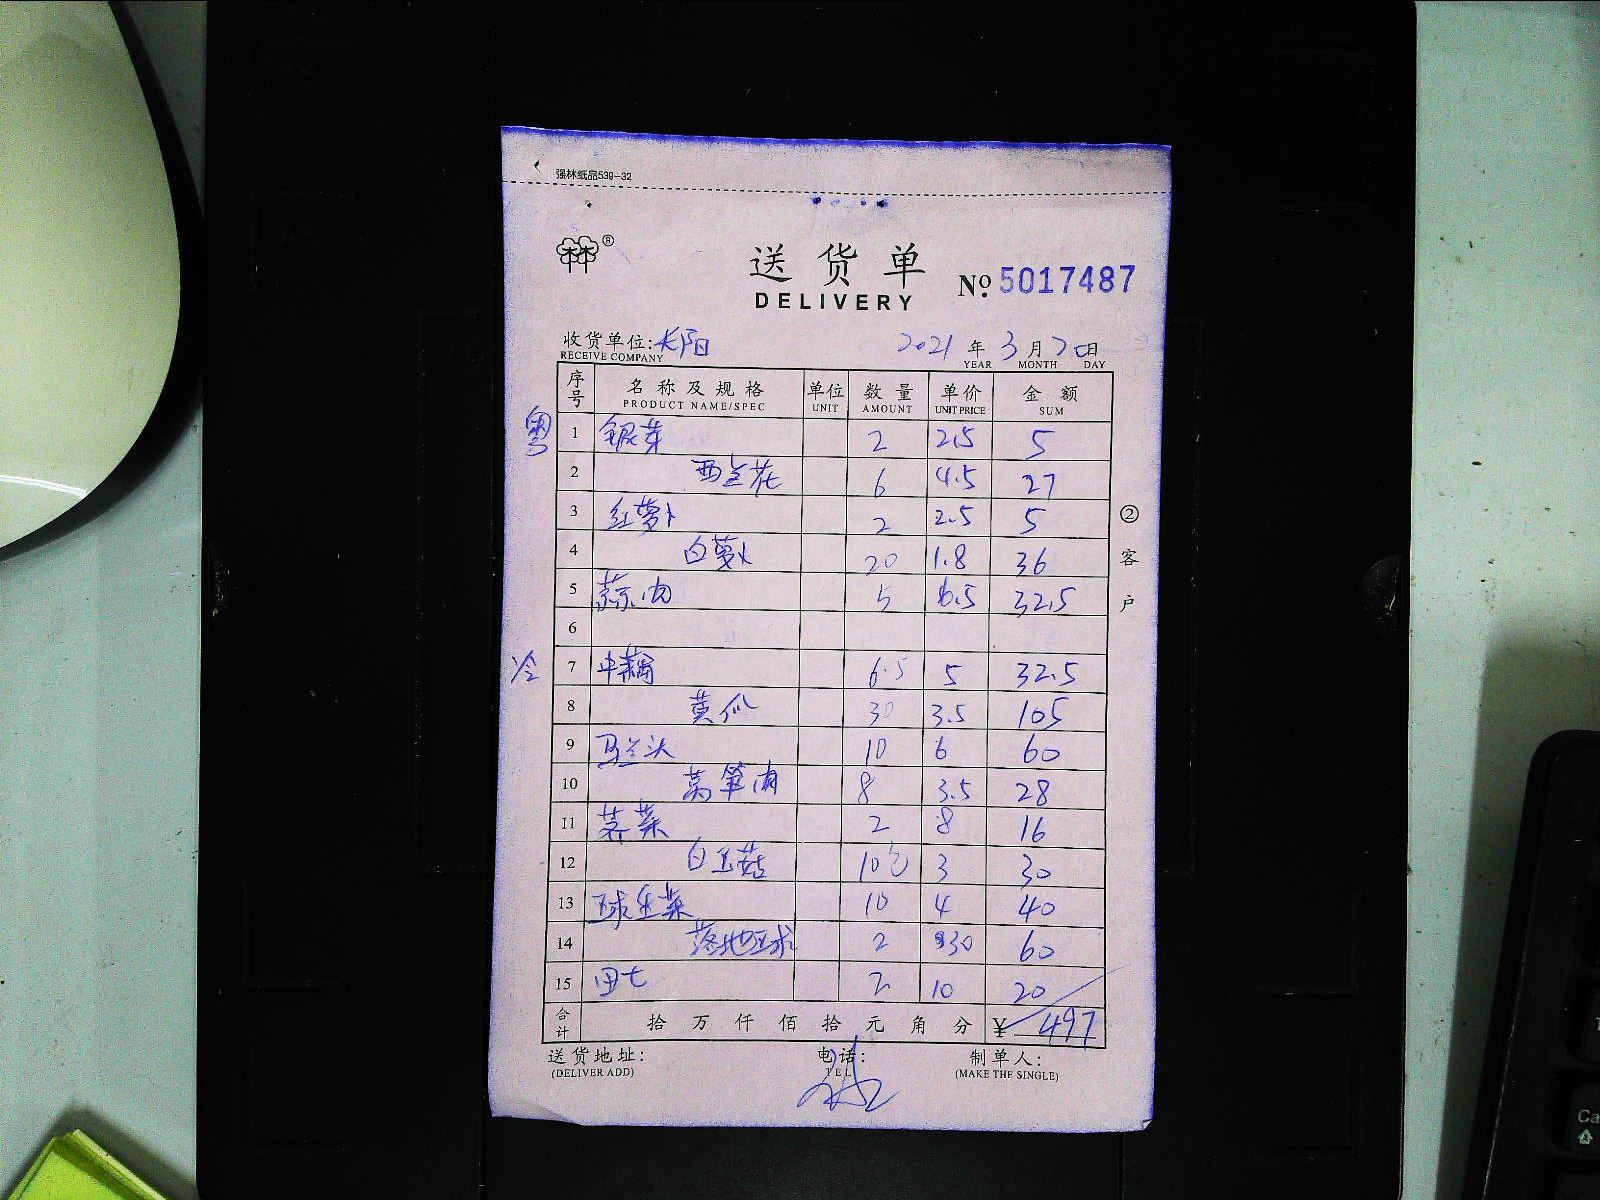 强林纸品539-32
®
送货单
DELIVERY
No. 5017487
收货单位: 长阳 2021 年 3 月 20 日
RECEIVE COMPANY YEAR MONTH DAY
序号 名称及规格 单位 数量 单价 金额
PRODUCT NAME/SPEC UNIT AMOUNT UNIT PRICE SUM
粤 1 银芽 2 2.5 5
2 西兰花 6 4.5 27
3 红萝卜 2 2.5 5
4 白萝卜 20 1.8 36
5 蒜肉 5 6.5 32.5
6
冷 7 中藕 6.5 5 32.5
8 黄瓜 30 3.5 105
9 马兰头 10 6 60
10 莴笋肉 8 3.5 28
11 荠菜 2 8 16
12 白玉菇 10包 3 30
13 球生菜 10 4 40
14 落地球 2 30 60
15 田七 2 10 20
合计 拾 万 仟 佰 拾 元 角 分 ¥ 497
送货地址: 电话: 制单人:
(DELIVER ADD) TEL (MAKE THE SINGLE)
② 客户